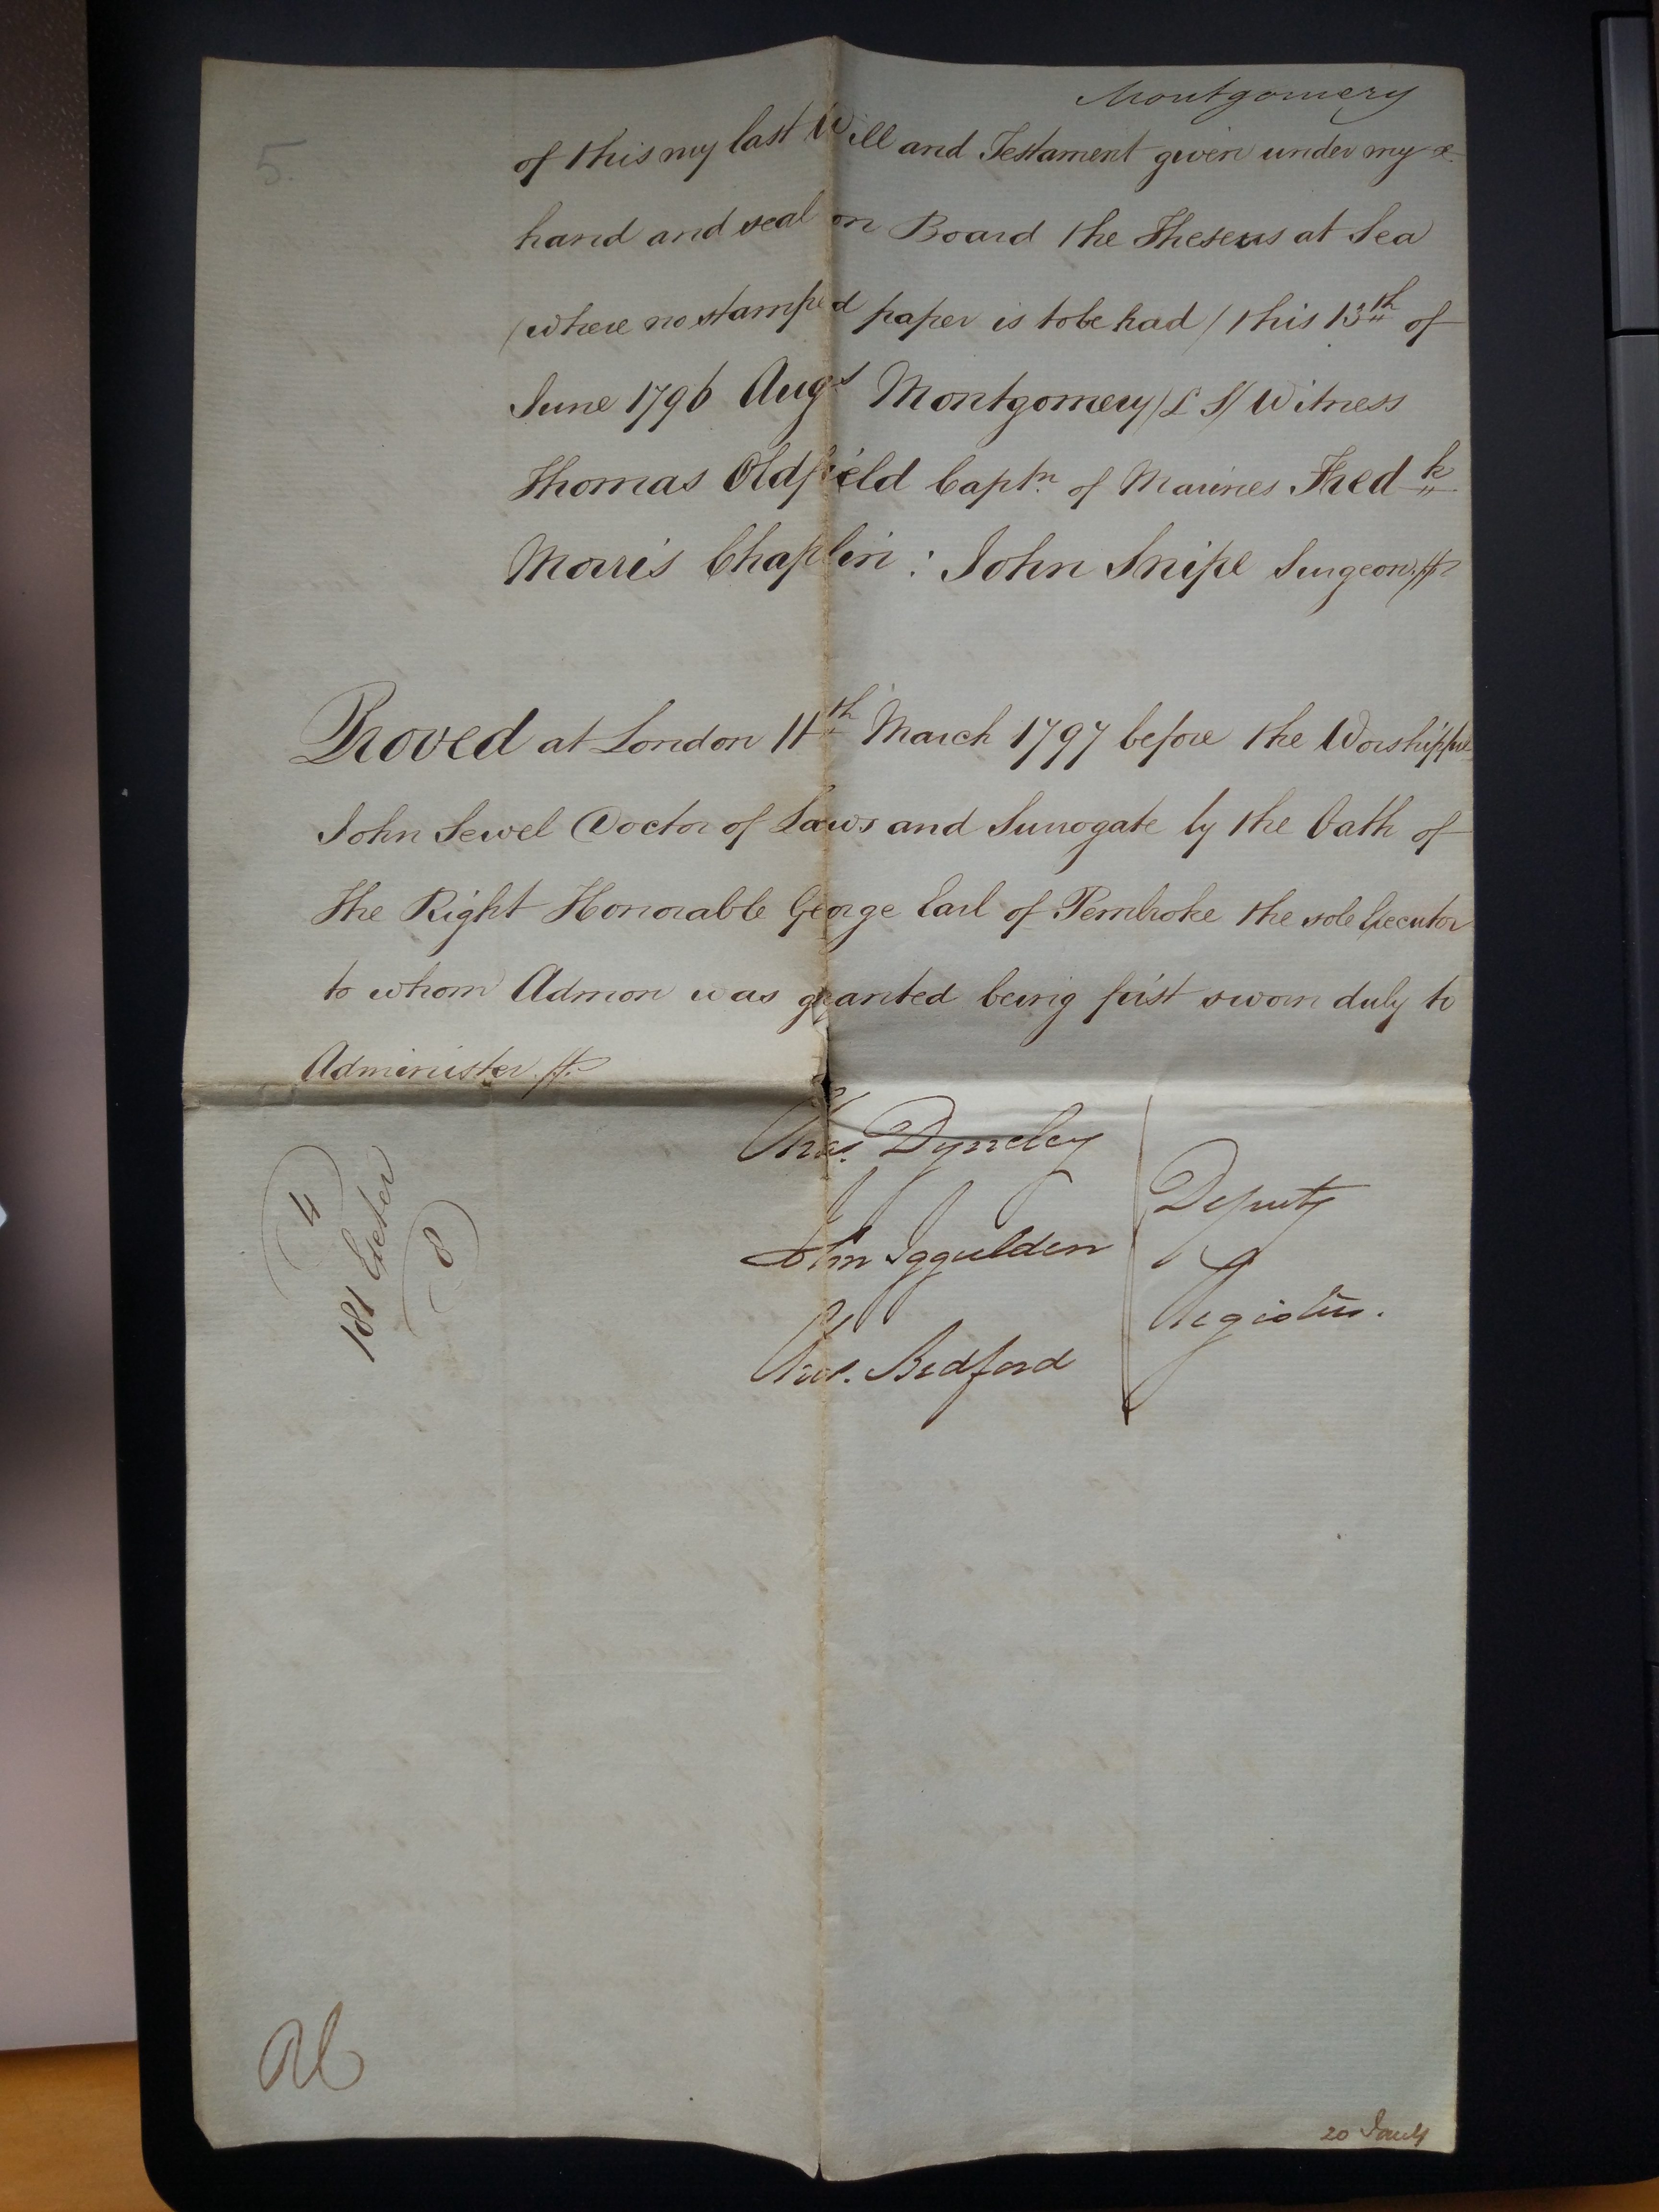 Montgomery
5.
of this my last Will and Testament given under my
hand and seal on Board the Theseus at Sea
/where no stamped paper is to be had/ this 13th of
June 1796 Augs Montgomery /L S/ Witness
Thomas Oldfield Captn. of Marines Fredk
Morris Chaplin: John Snipe Surgeon
Proved at London 11th March 1797 before the Worshipful
John Sewel Doctor of Laws and Surrogate by the Oath of
the Right Honorable George Earl of Pembroke the sole Executor
to whom Admon was granted being first sworn duly to
Administer
Chas. Dyneley
John Iggulden
Deputy
Registers.
4
181 Exeter
8
Bedford
20